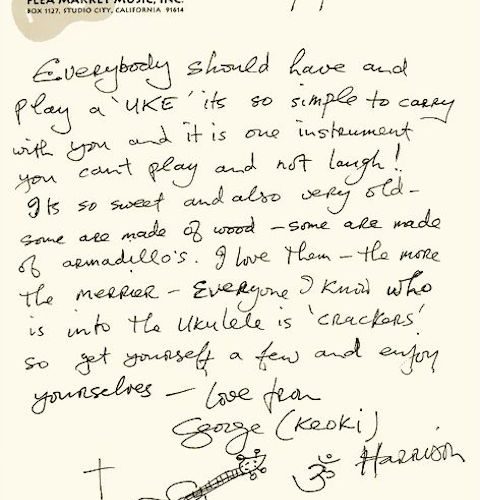 FLEA MARKET MUSIC, INC.
BOX 1127, STUDIO CITY, CALIFORNIA 91614
Everybody should have and
play a 'UKE' its so simple to carry
with you and it is one instrument
you cant play and not laugh!
Its so sweet and also very old-
some are made of wood - some are made
of armadillo's. I love them - the more
the merrier - Everyone I know who
is into the Ukulele is 'crackers'
so get yourself a few and enjoy
yourselves - Love from
George (Keoki)
ॐ Harrison